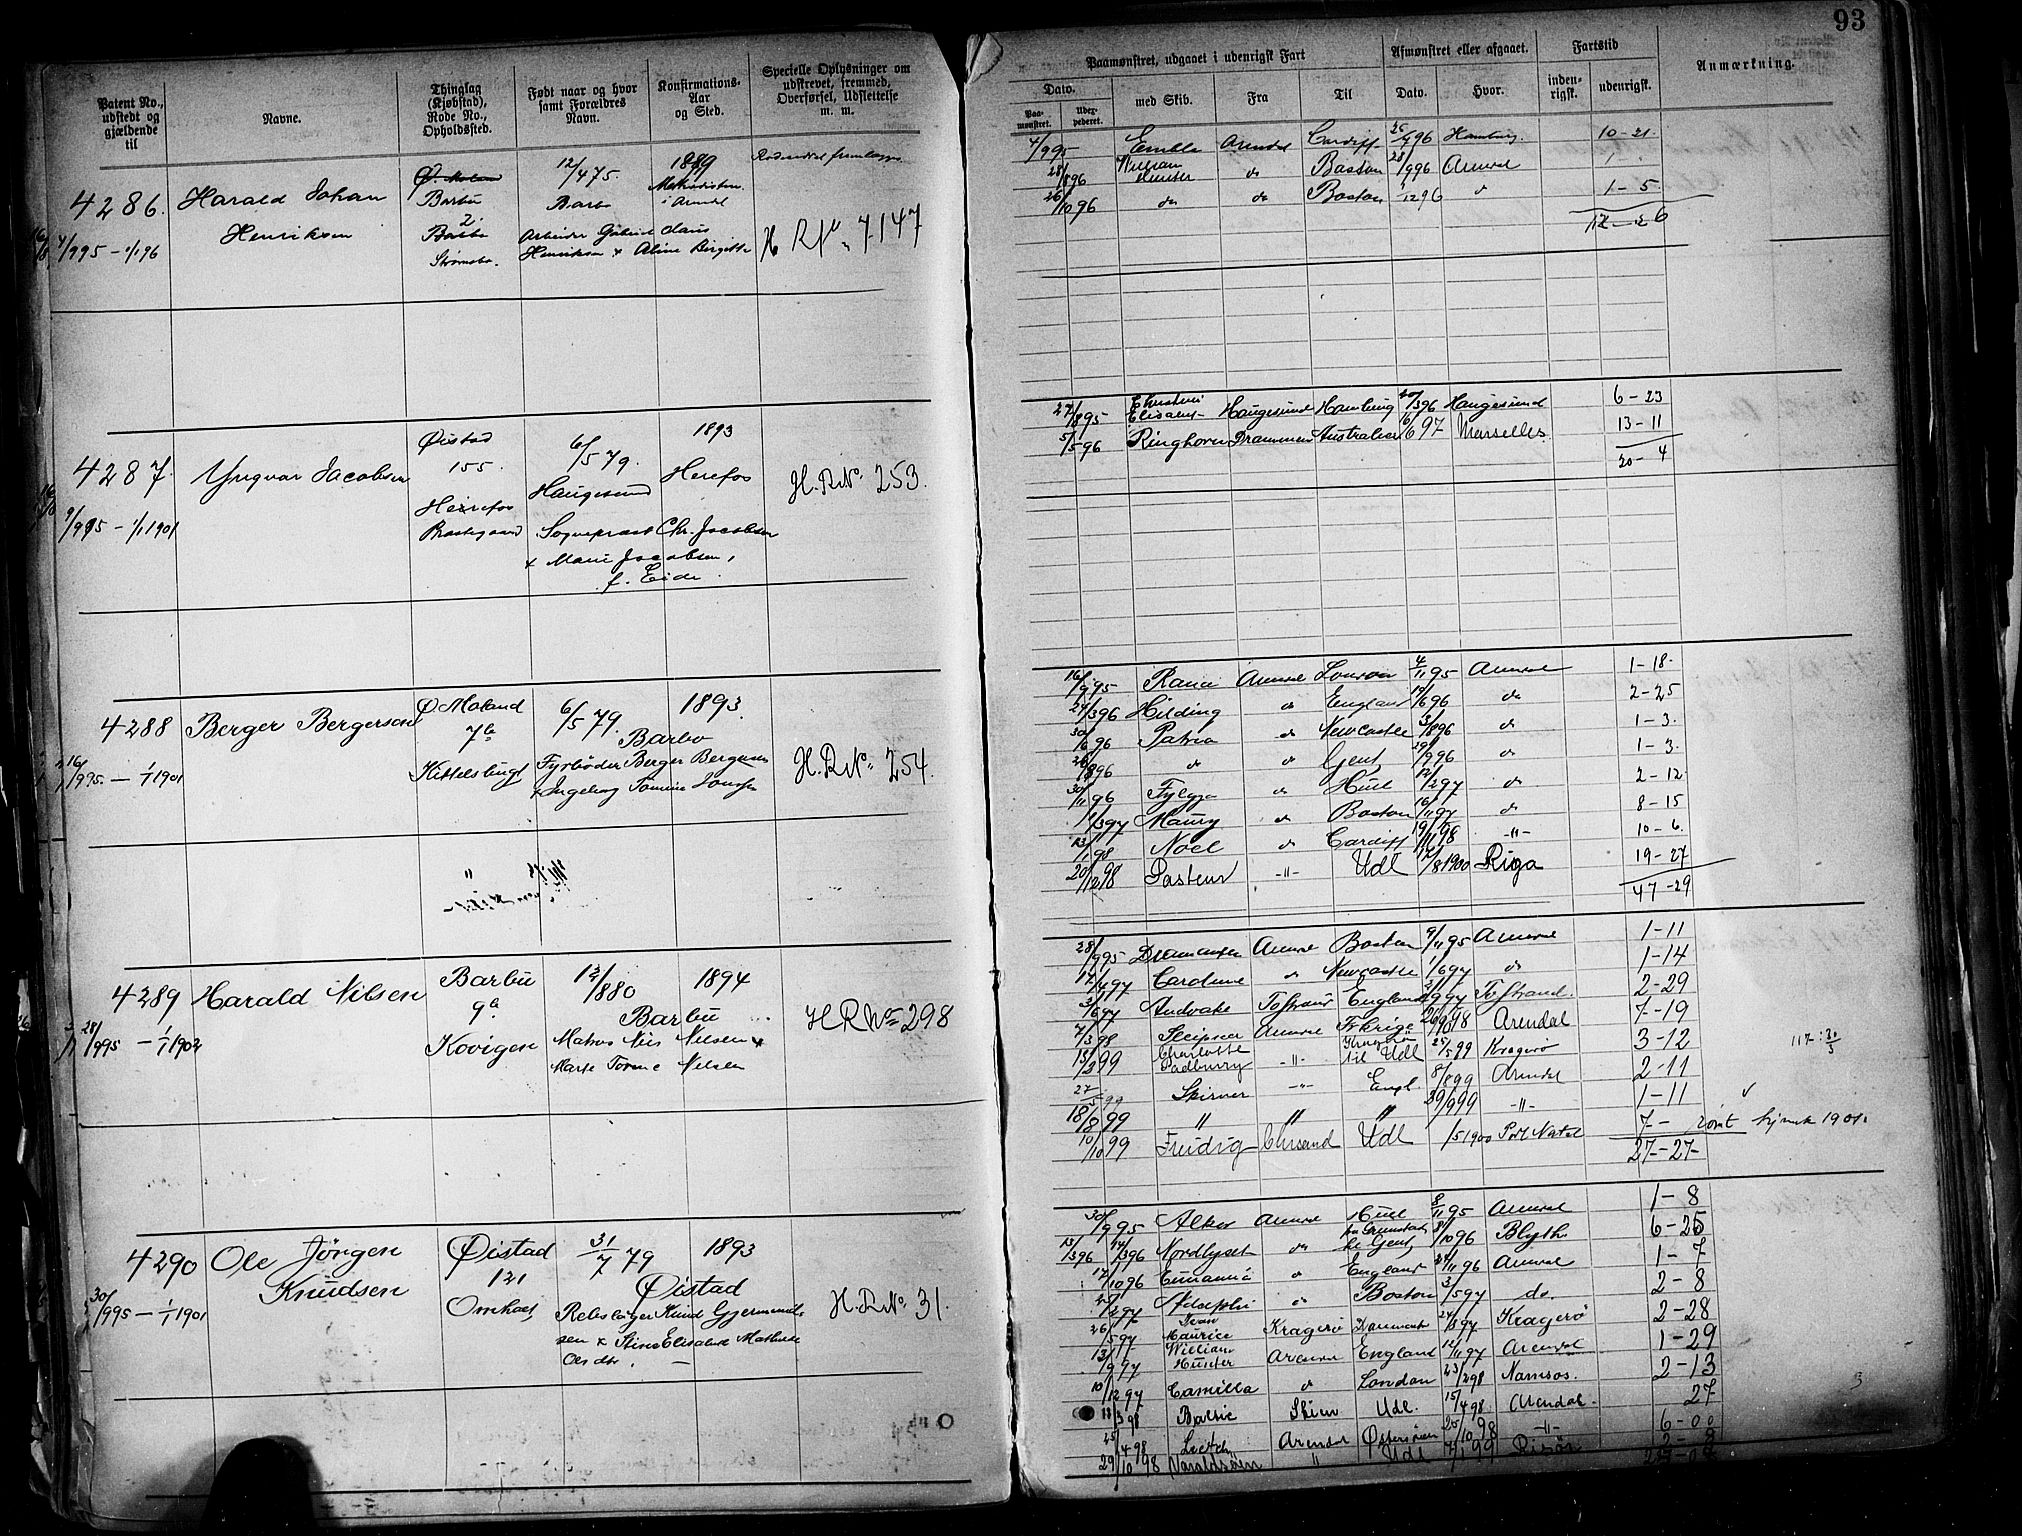 93
Patent No., udstedt og gjældende til
Navne.
Thinglag (Kjøbstad), Rode No., Opholdssted.
Født naar og hvor samt Forældres Navn.
Konfirmations-Aar og Sted.
Specielle Oplysninger om udskrevet, fremmed, Overførsel, Udslettelse m. m.
Paamønstret, udgaaet i udenrigsk Fart
Dato.
Paa-mønstret.
Uder-pederet.
med Skib.
Fra
Til
Afmønstret eller afgaaet.
Dato.
Hvor.
Fartstid
inden-rigsk.
udenrigsk.
Anmærkning.
4286. Harald Johan Henriksen
4/9 95 – 1/1 96
Barbu
2
Barbo
12/4 75.
Barbo
Arbeider Gabriel Claus
Henriksen & Aline Birgitte
1889
Methodisten
i Arendal
7147
4/9 95 Embla Arendal Cardiff 25/7 96 Hamburg. 10-21.
28/8 96 William Hunter do Boston 28/9 96 Arendal 1
26/10 96 do do Boston 1/12 96 do 1-5.
12-26
4287. Yngvar Jacobsen
9/9 95 – 1/1 1901
Øistad
155.
Herefos
Prestegaard
6/5 79.
Haugesund
Sogneprest Chr. Jacobsen
& Marie Jacobsen,
f. Eide.
1893
Herefos
H.R.No. 253.
27/8 95 Elisabeth Haugesund Hamburg 20/3 96 Haugesund 6-23
5/5 96 Ringhorn Drammen Australien 16/6 97 Marseilles. 13-11
20-4
4288 Berger Bergersen
16/9 95. – 1/1 1901
Ø Moland
7b
Kittelsbugt
6/5 79.
Barbo
Fyrbøder Berger Bergersen
& Ingeborg Tomine Jonsen
1893.
H.R.No. 254.
16/9 95 Rana Arendal London 4/11 95 Arendal 1-18.
24/3 96 Hilding do England 19/6 96 do 2-25
30/6 96 Patria do Newcastle 3/8 96 do 1-3.
26/8 96 do do Gent 29/9 96 do 1-3.
30/11 96 Fylgja do Hull 12/2 97 do 2-12
1/3 97 Maury do Boston 16/11 97 do 8-15
13/1 98 Noel do Cardiff 19/11 98 -"- 10-6.
20/10 98 Pasteur -"- Udl 17/8 1900 Riga 19-27
47-29
4289 Harald Nilsen
28/9 95 – 1/1 1902
Barbu
9a
Kovigen
12/8 80
Barbu
Matros Nils Nilsen &
Marte Torine Nilsen
1894
H R No 298
28/9 95 Dronningen Arendal Boston 9/11 95 Arendal 1-11
17/4 97 Caroline do Newcastle 1/6 97 do 1-14
3/6 97 Andvake Tvedestrand England 2/9 97 Tvstrand. 2-29
7/3 98 Sleipner Arendal Frkrige 26/10 98 Arendal 7-19
13/2 99 Charlotte Padbury -"- Kragerø til Udl 25/5 99 Kragerø 3-12
27/5 99 Skirner -"- Engl. 8/8 99 Arendal 2-11
18/8 99 " " " 29/9 99 -"- 1-11
10/10 99 Freidig Chrsand Udl /5 1900 Port Natal 7-
27-27-
1901.
4290 Ole Jörgen Knudsen
30/9 95 – 1/1 1901
Øistad
121
31/7 79
Øistad
Rebslager Knud Gjermundsen
& Stine Elisabeth Mathilde
Olsdtr.
1893
H.R.No. 31.
30/9 95 Alker Arendal Hull 8/11 95 Arendal 1-8
13/3 96 14/3 96 Nordlyset do fra Grimstad til Gent, 8/10 96 Blyth. 6-25
17/10 96 do England 24/11 96 Arendal 1-7
27/2 97 Adolphi do Boston 3/5 97 do. 2-8
26/5 97 Maurice Kragerø Danmark 24/8 97 Kragerø 2-28
13/9 97 William Hunter Arendal England 12/11 97 Arendal 1-29
10/12 97 Camilla do London 23/2 98 Namsos. 2-13
18/3 98 Baltic Skien Udl. 15/4 98. Arendal. 27
25/4 98 Arendal Østersøen 25/10 98 -"- 6-00
29/10 98 Varaldsöen " Udl 7/1 99 Risør 2-8